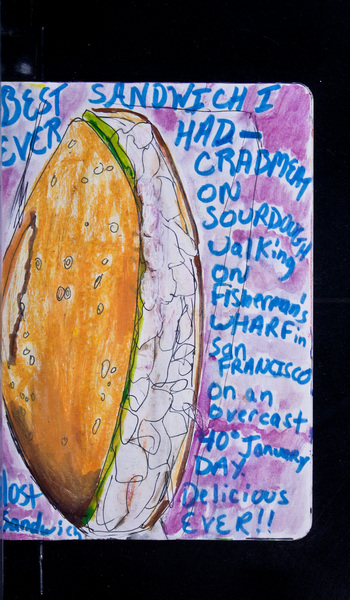 BEST SANDWICH I
EVER HAD—
CRABMEAT
ON
SOURDOUGH
walking
ON
Fisherman's
WHARF in
San
FRANCISCO
on an
overcast
40° January
DAY
Delicious
EVER!!
lost
Sandwich